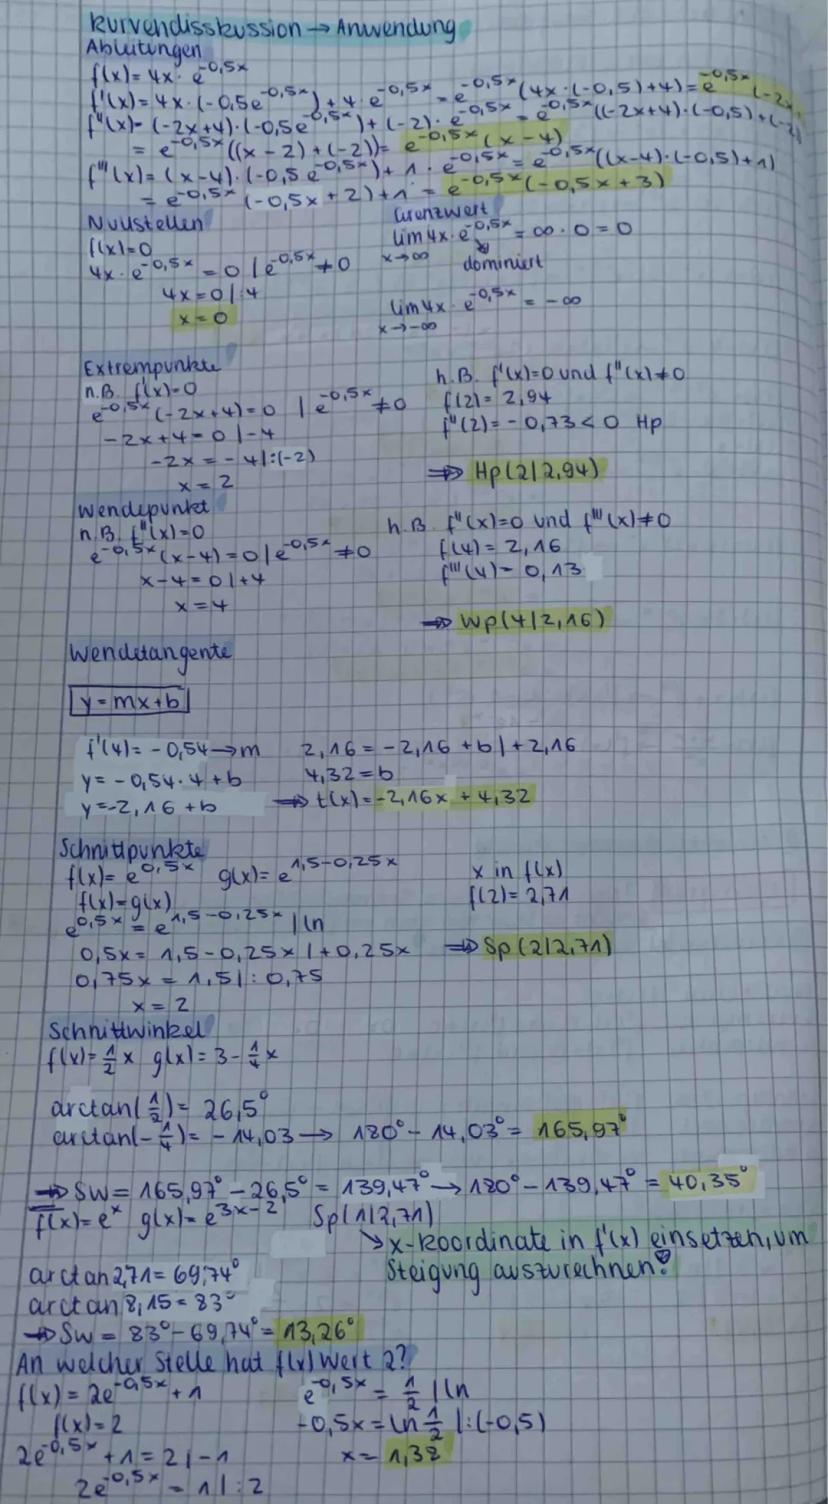 Kurvendisskussion → Anwendung
Ableitungen
f(x)= 4x · e^-0,5x
f'(x)= 4x · (-0,5e^-0,5x) + 4 · e^-0,5x = e^-0,5x (4x · (-0,5)+4) = e^-0,5x (-2x
f''(x)= (-2x+4) · (-0,5e^-0,5x) + (-2) · e^-0,5x = e^-0,5x ((-2x+4) · (-0,5)+(-2)
= e^-0,5x ((x-2)+(-2)) = e^-0,5x (x-4)
f'''(x)= (x-4) · (-0,5 e^-0,5x) + 1 · e^-0,5x = e^-0,5x ((x-4) · (-0,5)+1)
= e^-0,5x (-0,5x+2)+1 = e^-0,5x (-0,5x+3)
Nullstellen
f(x)=0
4x · e^-0,5x = 0 | e^-0,5x ≠0
4x=0 |:4
x=0
Grenzwert
lim 4x · e^-0,5x = ∞ · 0 = 0
x→∞ dominiert
lim 4x · e^-0,5x = -∞
x→-∞
Extrempunkte
n.B. f'(x)=0
e^-0,5x (-2x+4)=0 | e^-0,5x ≠0
-2x+4=0 |-4
-2x = -4 |:(-2)
x=2
h.B. f'(x)=0 und f''(x)≠0
f(2)= 2,94
f''(2)= -0,73<0 Hp
⇒ Hp(2|2,94)
Wendepunkt
n.B. f''(x)=0
e^-0,5x (x-4)=0 | e^-0,5x ≠0
x-4=0 |+4
x=4
h.B. f''(x)=0 und f'''(x)≠0
f(4)= 2,16
f'''(4)= 0,13
⇒ Wp(4|2,16)
Wendetangente
y=mx+b
f'(4)= -0,54→m
y= -0,54 · 4 +b
y=-2,16 +b
2,16 = -2,16 +b |+2,16
4,32=b
⇒ t(x)=-2,16x + 4,32
Schnittpunkte
f(x)= e^0,5x g(x)= e^1,5-0,25x
f(x)=g(x)
e^0,5x = e^1,5-0,25x | ln
0,5x= 1,5-0,25x |+0,25x
0,75x = 1,5 |:0,75
x=2
x in f(x)
f(2)= 2,71
⇒ Sp(2|2,71)
Schnittwinkel
f(x)= 1/2 x g(x)= 3- 1/4 x
arctan(1/2)= 26,5°
arctan(-1/4)= -14,03 → 180°-14,03°= 165,97°
⇒ SW= 165,97°-26,5°= 139,47° → 180°-139,47° = 40,35°
f(x)= e^x g(x)= e^3x-2 Sp(1|2,71)
↘ x-Koordinate in f'(x) einsetzen, um
Steigung auszurechnen!
arctan 2,71= 69,74°
arctan 8,15= 83°
⇒ SW= 83°-69,74°= 13,26°
An welcher Stelle hat f(x) Wert 2?
f(x)= 2e^-0,5x + 1
f(x)=2
2e^-0,5x +1=2 |-1
2e^-0,5x = 1 |:2
e^-0,5x = 1/2 | ln
-0,5x= ln 1/2 |:(-0,5)
x= 1,38